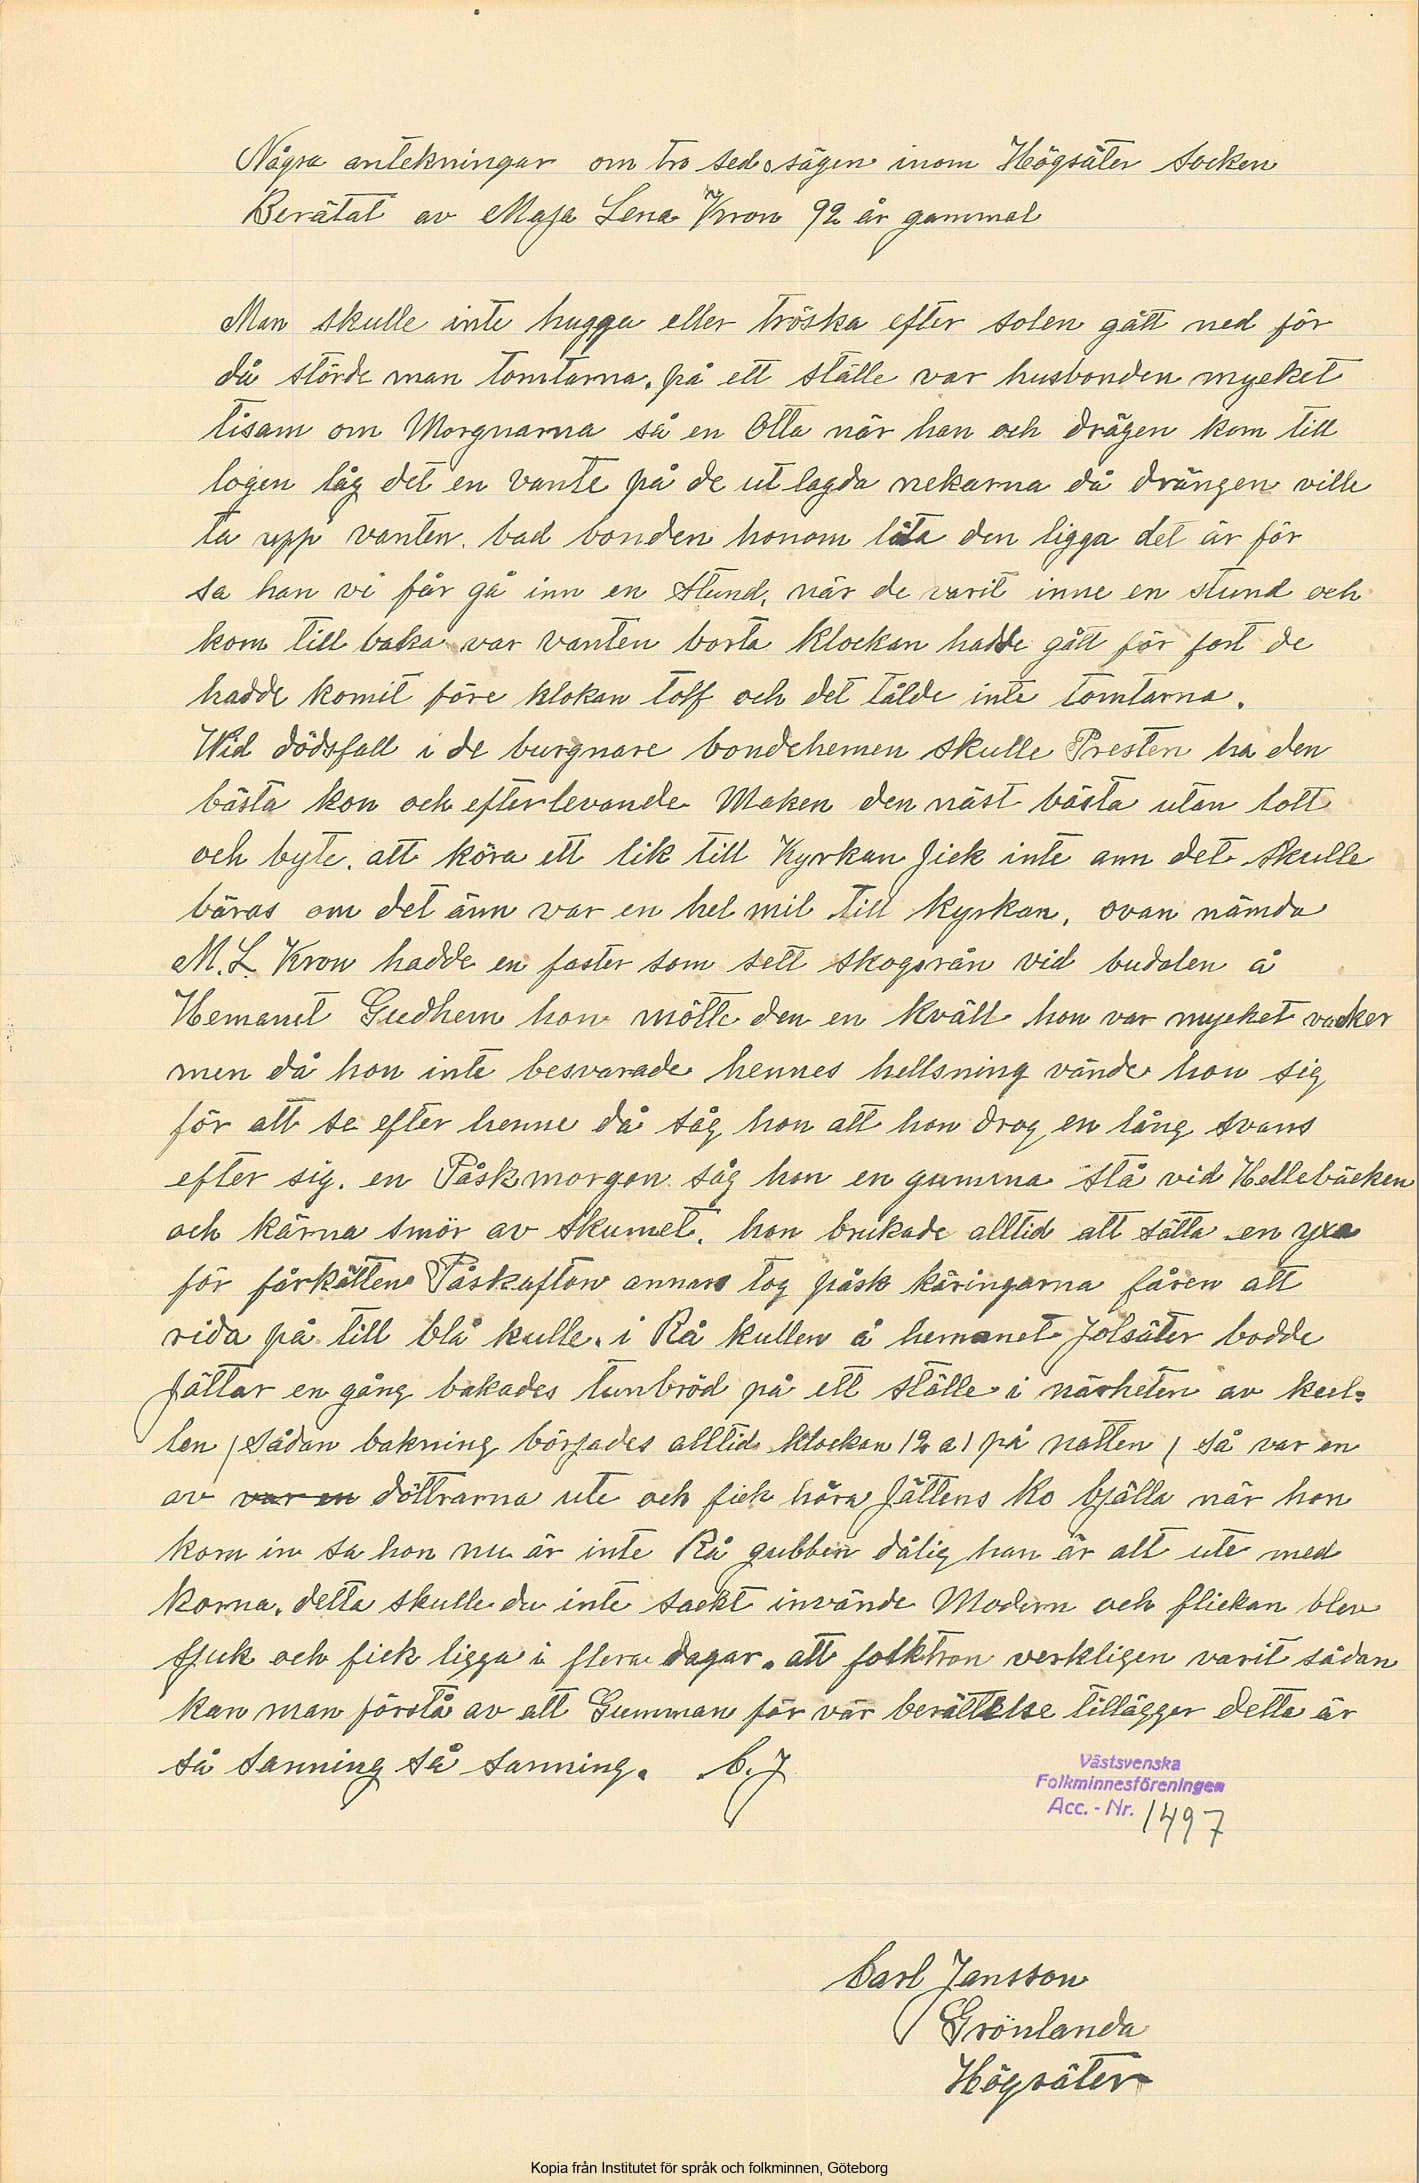 Några antekningar om tro sed o sägen inom Högsäter Socken
Berätat av Maja Lena Kron 92 år gammal
Man skulle inte hugga eller tröska efter solen gått ned för
då störde man tomtarna. på ett ställe var husbonden mycket
tisam om Morgnarna så en Otta när han och drägen kom till
logen låg det en vante på de ut lagda nekarna då drängen ville
ta upp vanten. bad bonden honom låta den ligga det är för
sa han vi får gå inn en Stund, när de varit inne en stund och
kom till baka var vanten borta klockan hadde gått för fort de
hadde komit före klokan tolf och det tålde inte tomtarna.
Wid dödsfall i de burgnare bondehemen skulle Presten ha den
bästa kon och efterlevande Maken den näst bästa utan lott
och byte. att köra ett lik till Kyrkan fick inte ann det skulle
bäras om det änn var en hel mil till kyrkan, ovan nämda
M. L. Kron hadde en faster som sett skogsrån vid budalen å
Hemanet Gudhem hon mötte den en kväll hon var mycket vacker
men då hon inte besvarade hennes hellsning vände hon sig
för att se efter henne då såg hon att hon drog en lång svans
efter sig. en Påskmorgon såg hon en gumma stå vid Hellebäcken
och kärna smör av skumet. hon brukade alltid att sätta en yxa
för fårkätten Påskafton annars tog påsk käringarna fåren att
rida på till blå kulle. i Rå kullen å hemanet Jolsäter bodde
Jättar en gång bakades tunbröd på ett ställe i närheten av kul=
len (sådan bakning börjades alltid klockan 12 a 1 på natten) så var en
av var en döttrarna ute och fick höra Jättens ko bjälla när hon
kom in sa hon nu är inte Rå gubben dålig han är alt ute med
korna. detta skulle du inte sackt invände Modern och flickan blev
sjuk och fick ligga i flera dagar. att folktron verkligen varit sådan
kan man förstå av att Gumman för vár berättelse tillägger detta är
så sanning så sanning. C. J
Västsvenska
Folkminnesföreningen
Acc. - Nr. 1497
Carl Jansson
Grönlanda
Högsäter
Kopia från Institutet för språk och folkminnen, Göteborg